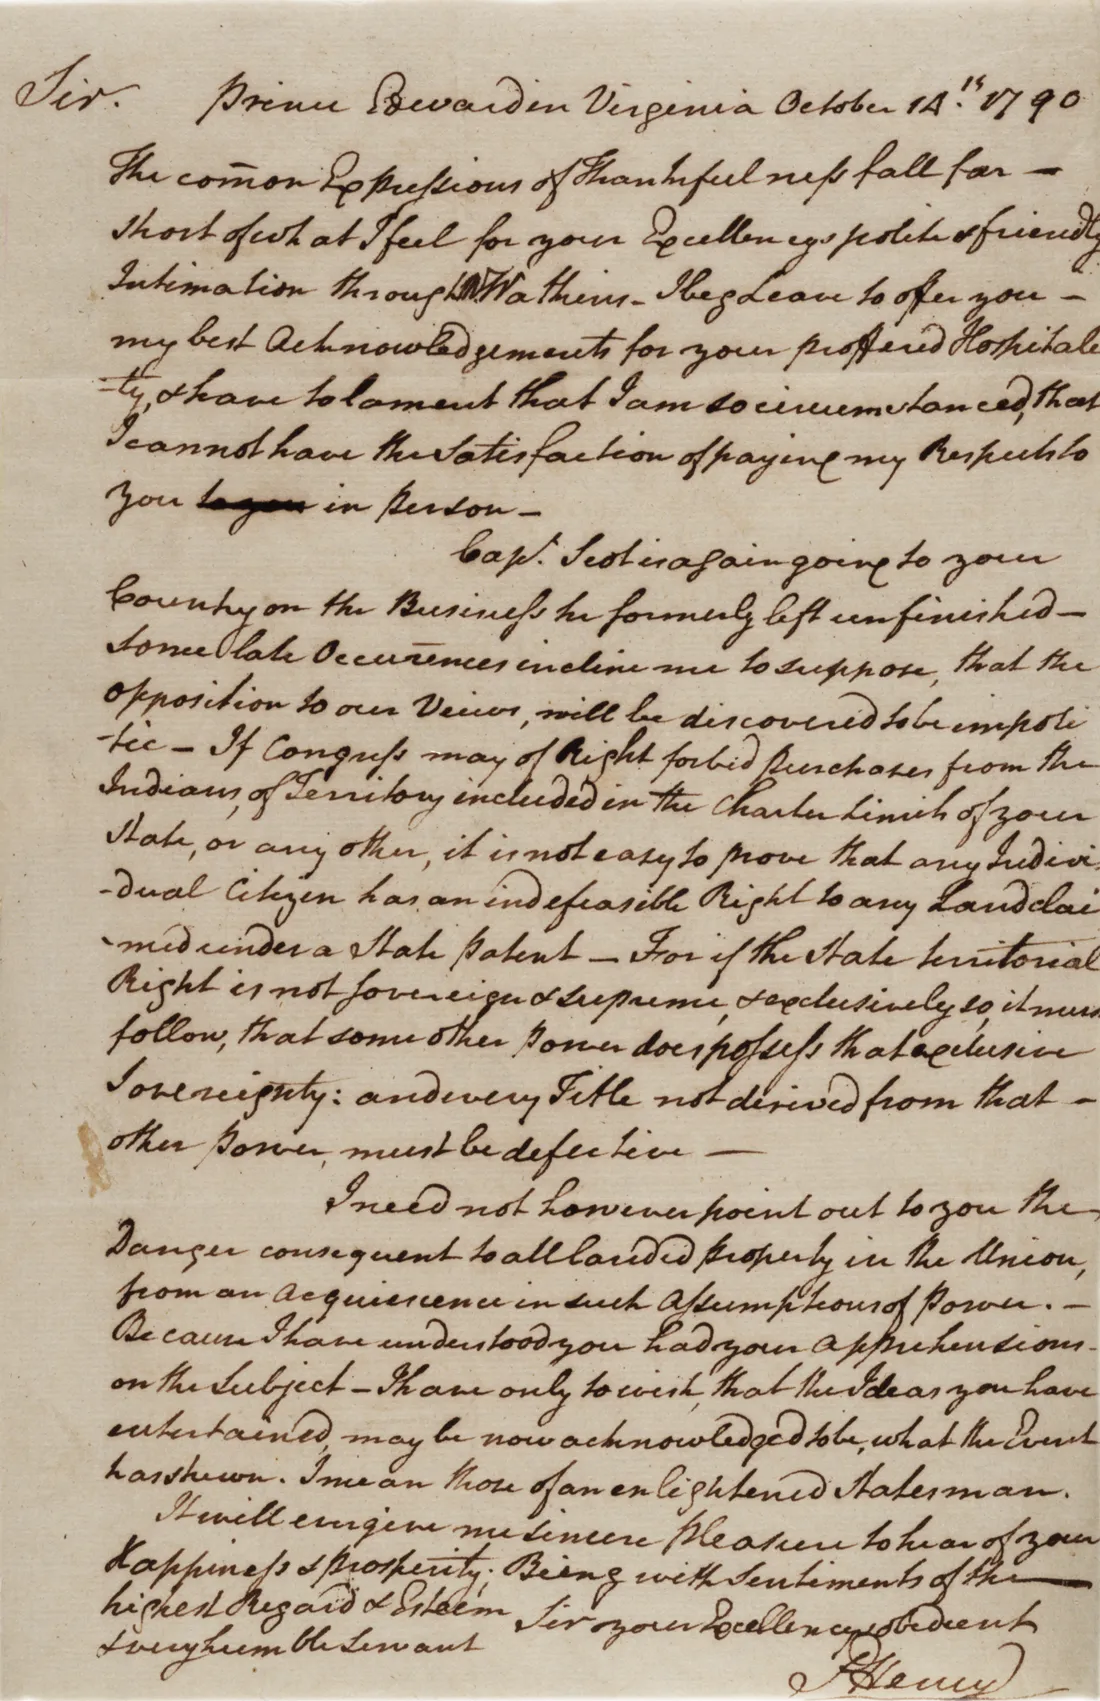 Sir. Prince Edward in Virginia October 14.th 1790
The com̄on Expressions of Thankfulness fall far —
short of what I feel for your Excellencys polite & friendly
Intimation through Mr Watkins – I beg Leave to offer you –
my best Acknowledgements for your proffered Hospitali
-ty, & have to lament that I am so circumstanced, that
I cannot have the Satisfaction of paying my Respects to
you to you in person –
Capt. Scot is again going to your
Country on the Business he formerly left unfinished –
some late Occur̄ences incline me to suppose, that the
opposition to our Views, will be discovered to be impoli
-tic – If Congress may of Right forbid purchases from the
Indians, of Territory included in the Charter Limits of your
State, or any other, it is not easy to prove that any Indivi
-dual Citizen has an indefeasible Right to any Land clai
-med under a State Patent – For if the State territorial
Right is not sovereign & supreme, & exclusively so, it must
follow, that some other Power does possess that exclusive
Sovereignty: and every Title not derived from that –
other Power, must be defective —
I need not however point out to you the
Danger consequent to all landed property in the Union,
from an acquiescence in such assumptions of Power. –
Because I have understood you had your apprehensions
on the Subject – I have only to wish, that the Ideas you have
entertained, may be now acknowledged to be, what the Event
has shewn. I mean those of an enlightened Statesman.
It will ever give me sincere pleasure to hear of your
Happiness & prosperity; Being with Sentiments of the —
highest Regard & Esteem Sir your Excellencys obedient
& very humble Servant
P Henry